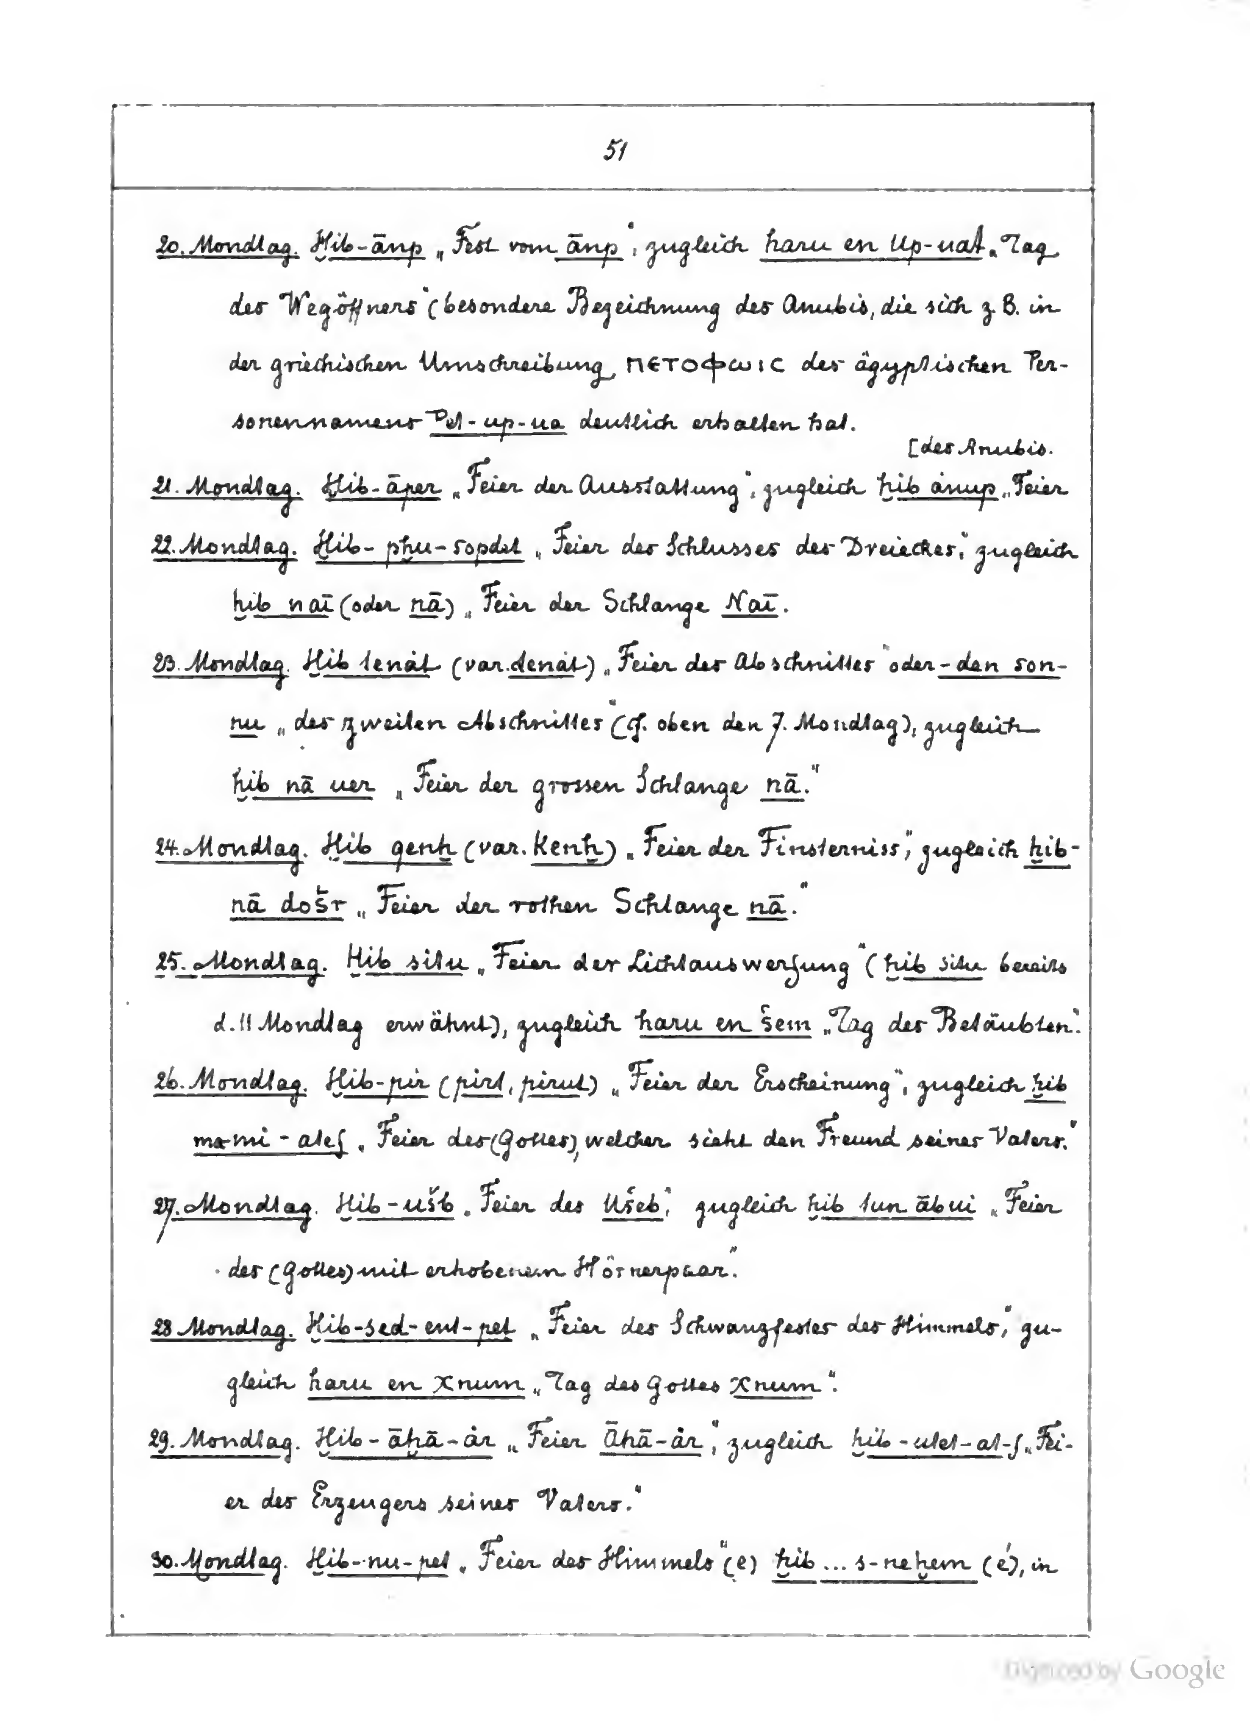 51
20. Mondtag. Ḥib-ānp „Fest vom ānp“, zugleich haru en Up-uat „Tag
des Wegöffners“ (besondere Bezeichnung des Anubis, die sich z. B. in
der griechischen Umschreibung ΠΕΤΟΦΩΙC des ägyptischen Per-
sonennamens Pet-up-ua deutlich erhalten hat.
[des Anubis.
21. Mondtag. Ḥib-āper „Feier der Ausstattung“, zugleich ḥib ȧnup „Feier
22. Mondtag. Ḥib-pḥu-sopdet „Feier des Schlusses des Dreieckes“, zugleich
ḥib naī (oder nā) „Feier der Schlange Naī.
23. Mondtag. Ḥib tenȧt (var. denȧt) „Feier des Abschnittes“ oder-den son-
nu „des zweiten Abschnittes“ (cf. oben den 7. Mondtag), zugleich
ḥib nā uer „Feier der grossen Schlange nā.“
24. Mondtag. Ḥib qenḥ (var. Kenḥ) „Feier der Finsterniss“, zugleich ḥib-
nā došr „Feier der rothen Schlange nā.“
25. Mondtag. Ḥib situ „Feier der Lichtauswerfung“ (ḥib situ bereits
d. 11 Mondtag erwähnt), zugleich haru en šem „Tag des Betäubten“.
26. Mondtag. Ḥib-pir (pirt, pirut) „Feier der Erscheinung“, zugleich ḥib
ma-mi-atef „Feier des (Gottes), welcher sieht den Freund seines Vaters.“
27. Mondtag. Ḥib-ušb „Feier des Ušeb“, zugleich ḥib tun ābui „Feier
des (Gottes) mit erhobenem Hörnerpaar“.
28 Mondtag. Ḥib-sed-ent-pet „Feier des Schwanzfestes des Himmels“, zu-
gleich haru en χnum „Tag des Gottes χnum“.
29. Mondtag. Ḥib-āḥā-ȧr „Feier Āḥā-ȧr“, zugleich ḥib-utet-at-f „Fei-
er des Erzeugers seines Vaters.“
30. Mondtag. Ḥib-nu-pet „Feier des Himmels“ (e) ḥib ... s-neḥem (é), in
Digitized by Google